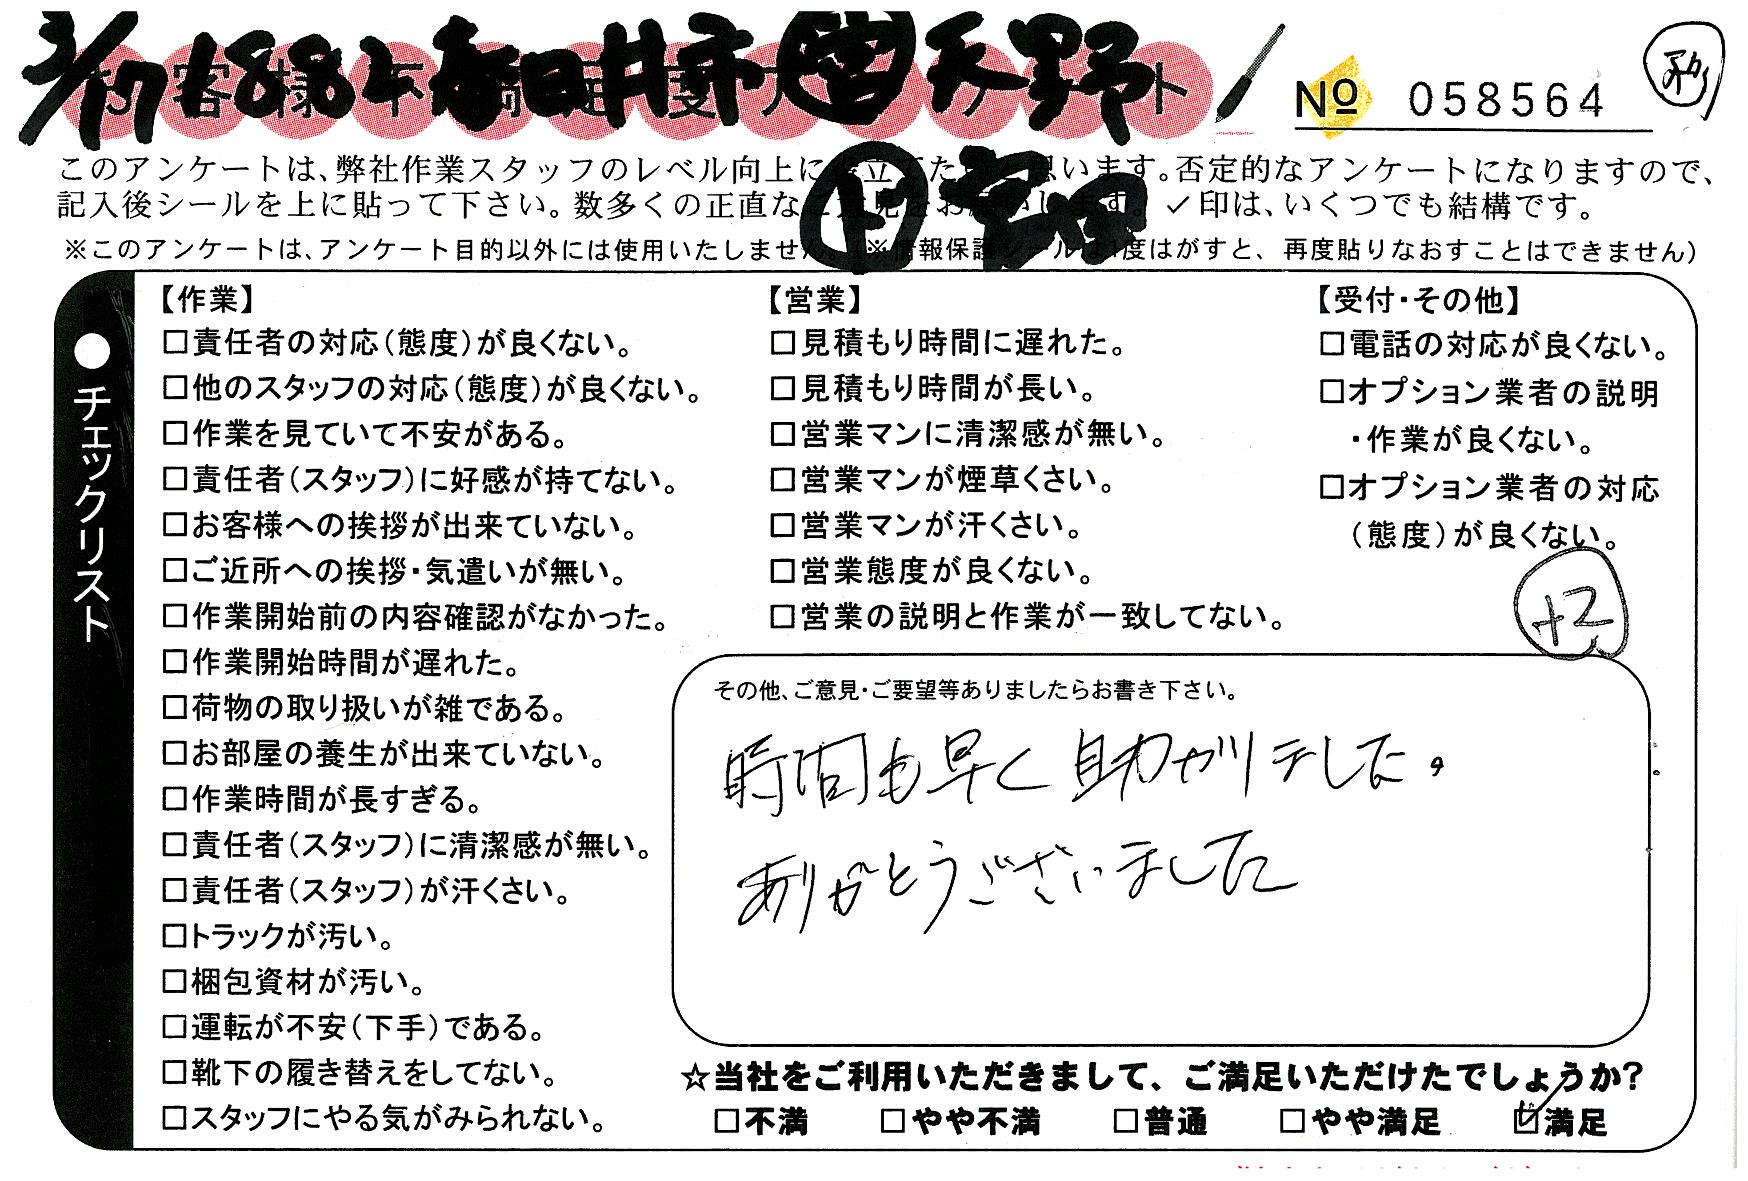 3/17 1884 春日井市 営 天野
No 058564
このアンケートは、弊社作業スタッフのレベル向上に役立てたいと思います。否定的なアンケートになりますので、
記入後シールを上に貼って下さい。数多くの正直なご意見をお願いします。✓印は、いくつでも結構です。
※このアンケートは、アンケート目的以外には使用いたしません。(※情報保護シールは1度はがすと、再度貼りなおすことはできません)
●チェックリスト
【作業】
□責任者の対応(態度)が良くない。
□他のスタッフの対応(態度)が良くない。
□作業を見ていて不安がある。
□責任者(スタッフ)に好感が持てない。
□お客様への挨拶が出来ていない。
□ご近所への挨拶・気遣いが無い。
□作業開始前の内容確認がなかった。
□作業開始時間が遅れた。
□荷物の取り扱いが雑である。
□お部屋の養生が出来ていない。
□作業時間が長すぎる。
□責任者(スタッフ)に清潔感が無い。
□責任者(スタッフ)が汗くさい。
□トラックが汚い。
□梱包資材が汚い。
□運転が不安(下手)である。
□靴下の履き替えをしてない。
□スタッフにやる気がみられない。
【営業】
□見積もり時間に遅れた。
□見積もり時間が長い。
□営業マンに清潔感が無い。
□営業マンが煙草くさい。
□営業マンが汗くさい。
□営業態度が良くない。
□営業の説明と作業が一致してない。
【受付・その他】
□電話の対応が良くない。
□オプション業者の説明
・作業が良くない。
□オプション業者の対応
(態度)が良くない。
+2
その他、ご意見・ご要望等ありましたらお書き下さい。
時間も早く助かりました。
ありがとうございました
☆当社をご利用いただきまして、ご満足いただけたでしょうか?
□不満 □やや不満 □普通 □やや満足 ☑満足